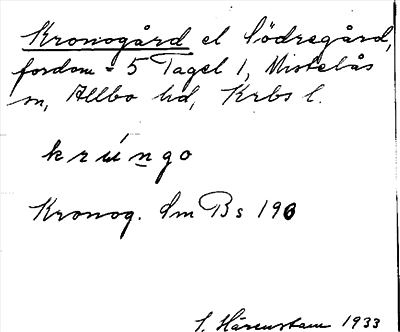 Kronogård el Södregård,
fordom = 5 Tagel 1, Mistelås
sn, Allbo hd, Krbs l.
krúngo
Kronog. Sm Bs 196
S. Härenstam 1933